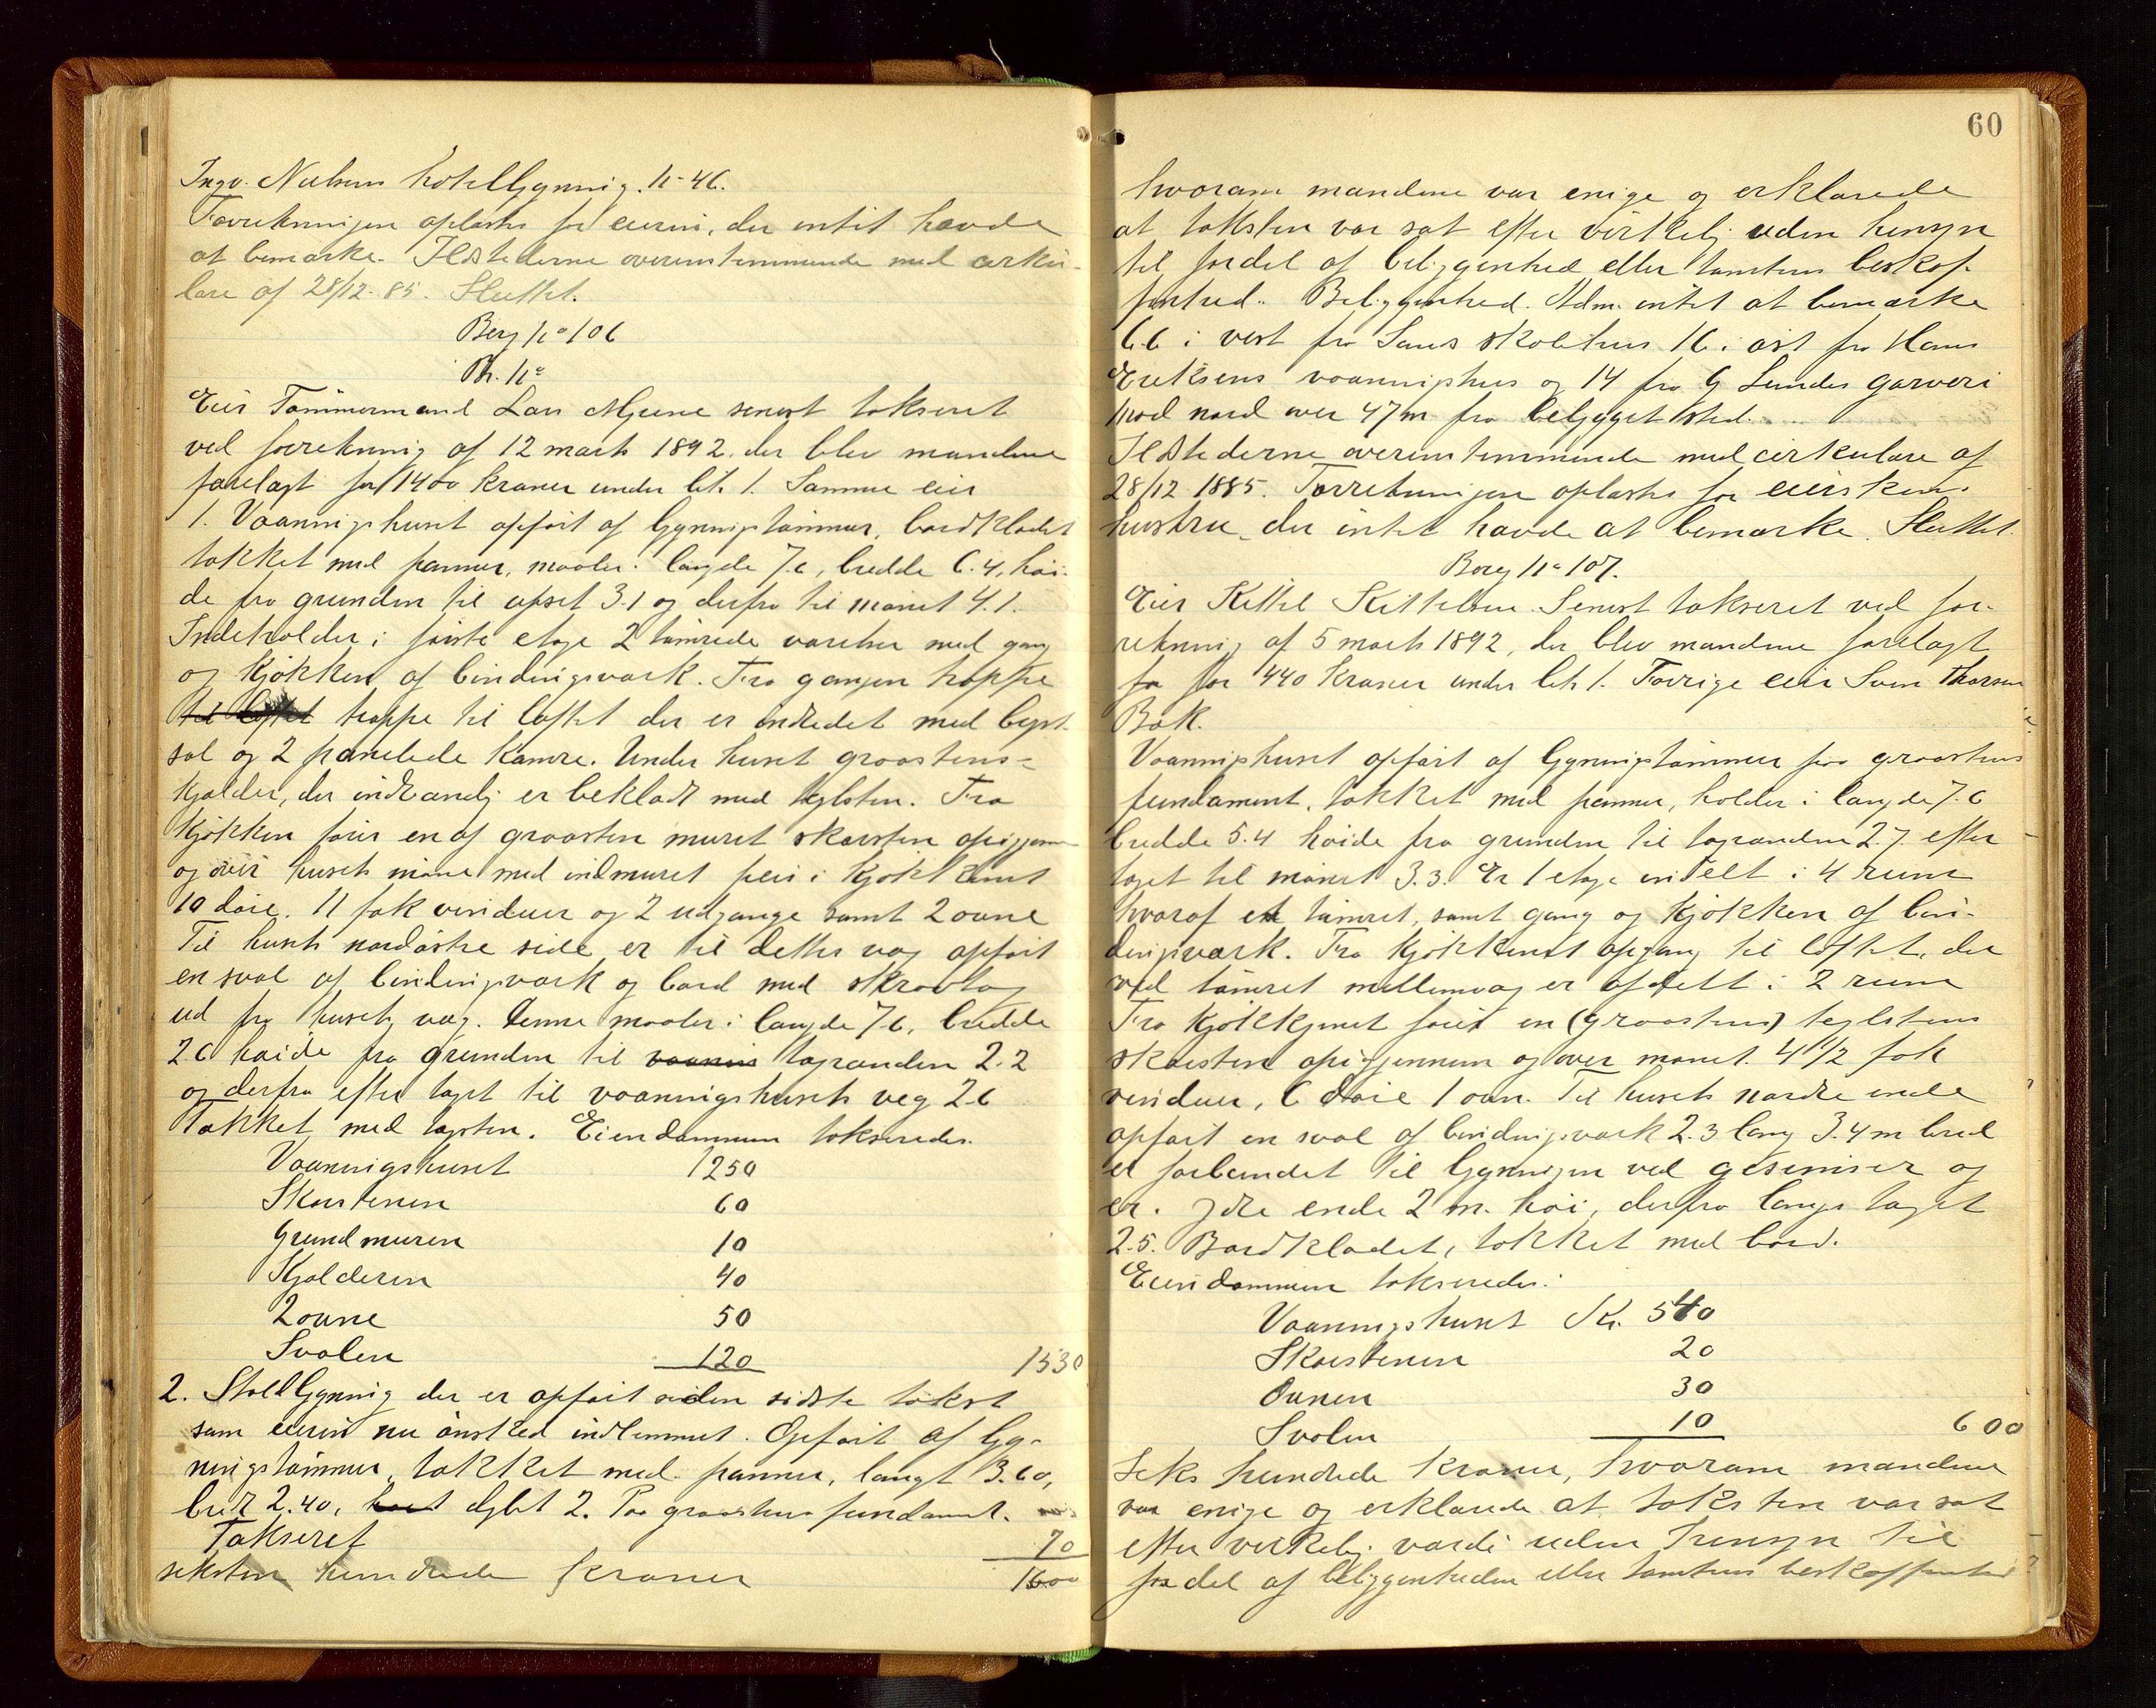 Ingv. Nielsens hotelbygning. No 46.
Forretningen oplæstes for eieren, der intet havde
at bemærke. Ildstederne overensstemmende med cirku-
lære af 28/12-85. Sluttet.
Berg No 106
Br. No
Eier Tømmermand Lars Mjeene senest takseret
ved forretning af 12 marts 1892, der blev mandene
forelagt for 1400 kroner under lit. 1. Samme eier
1. Vaaningshuset opført af bygningstømmer, bordklædt
tækket med panner, maaler: længde 7.6, bredde 6.4, høi-
de fra grunden til opset 3.1 og derfra til mønet 4.1.
Indeholder i første etage 2 tømrede værelser med gang
og kjøkken af bindingsværk. Fra gangen trappe
til loftet trappe til loftet der er indredet med bist-
sal og 2 panelede kamre. Under huset graastens-
kjælder, der indvendig er beklædt med teglsten. Fra
kjøkken fører en af graasten muret skorsten opigjennem
og over husets møne med indmuret peis i kjøkkenet
10 døre. 11 fak vinduer og 2 udgange samt 2 ovne
Til husets nordøstre side er til dettes væg opført
en sval af bindingsværk og bord med skraatag
ud fra husets væg. Denne maaler: længde 7.6, bredde
2.6 høide fra grunden til vaanin tagranden 2.2
og derfra efter taget til vaaningshusets veg 2.6
Tækket med tagsten. Eiendommen takseredes.
Vaaningshuset 1250
Skorstenen 60
Grundmuren 10
Kjælderen 40
2 ovne 50
Svalen 120 1530
2. Staldbygning der er opført siden sidste takst
som eieren nu ønsked indlemmet. Opført af byg-
ningstømmer, tækket med panner, langt 3.60,
bredt 2.40, dybt 2. Paa graastens fundament.
Takseret 70
seksten hundrede kroner 1600

60
hvorom mandene var enige og erklærede
at taksten var sat efter virkelig uden hensyn
til fordel af beliggenhed eller tomtens beskaf-
fenhed. Beliggenhed. Adm. intet at bemærke
6.6 i vest fra Lunds skolehus 16 i øst fra Hans
Eriksens vaaningshus og 14 fra G Lundes garveri
Mod nord over 47 m fra bebygget sted.
Ildstederne overensstemmende med cirkulære af
28/12 1885. Forretningen oplæstes for eierskens
hustru, der intet havde at bemærke. Sluttet.
Berg No 107.
Eier Kittel Kittelsen. Senest takseret ved for-
retning af 5 marts 1892, der blev mandene forelagt
for 440 kroner under lit. 1. Forrige eier Sven Thorsen
Bak.
Vaaningshuset opført af bygningstømmer paa graastens
fundament, tækket med panner, holder i længde 7.6
bredde 5.4 høide fra grunden til tagranden 2.7. efter
taget til mønet 3.3. Er 1 etage inddelt i 4 rum
hvoraf et tømret, samt gang og kjøkken af bin-
dingsværk. Fra kjøkkenet opgang til loftet, der
ved tømret mellemvæg er afdelt i 2 rum
Fra kjøkkenet fører en (graastens) teglstens
skorsten opigjennem og over mønet. 4 1/2 fak
vinduer, 6 døre 1 ovn. Til husets nordre ende
opført en sval af bindingsværk 2.3 lang 3.4 m bred
er forbundet til bygningen ved gesimser og
er i ydre ende 2 m. høi, derfra langs taget
2.5. Bordklædt, tækket med bord.
Eiendommen takseredes:
Vaaningshuset Kr. 540
Skorstenen 20
Ovnen 30
Svalen 10 600
Seks hundrede kroner, hvorom mandene
var enige og erklærede at taksten var sat
efter virkelig værdi uden hensyn til
fordel af beliggenheden eller tomtens beskaffenhed